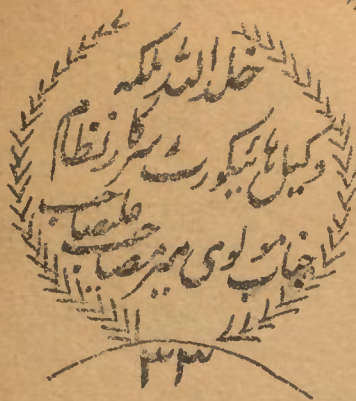 خلد اللہ ملکہ
وکیل ہائیکورٹ سرکار نظام
جناب مولوی میر
صاحب